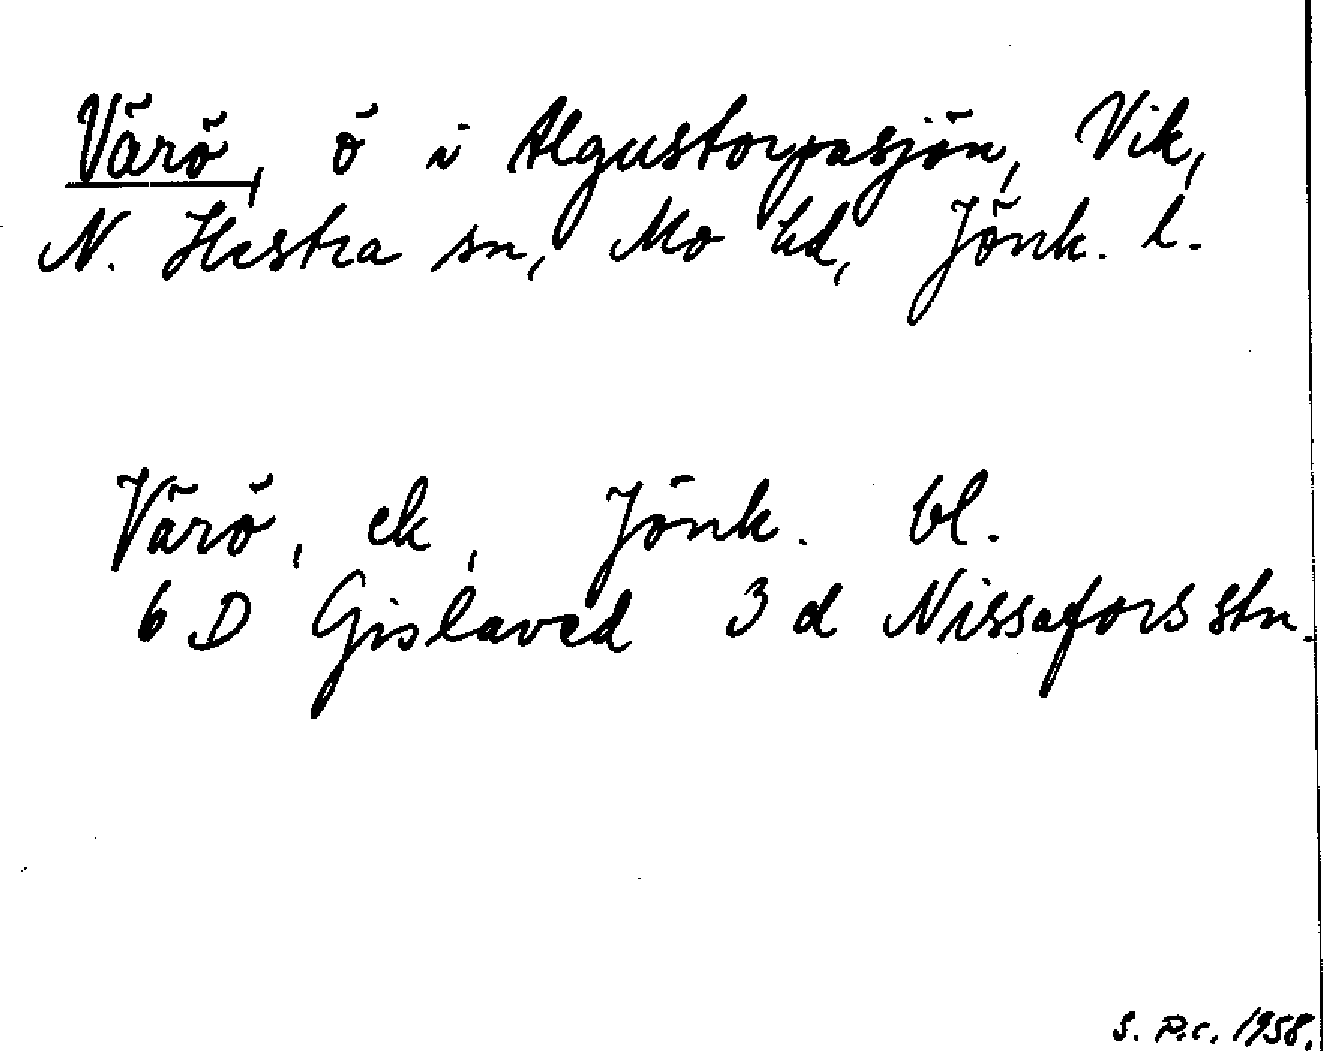 Värö, ö i Algustorpasjön, Vik,
N. Hestra sn, Mo hd, Jönk. l.
Värö, ek, Jönk. bl.
6 D Gislaved 3 d Nissafors stn.
S. P.c. 1958.